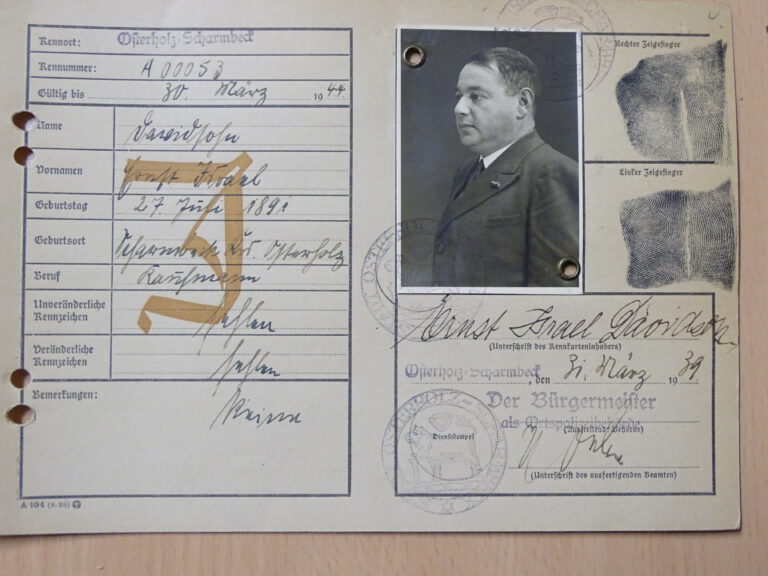 Kennort: Osterholz-Scharmbeck
Kennummer: A 00053
Gültig bis 30. März 1944
Name Davidsohn
Vornamen Ernst Israel
Geburtstag 27. Juli 1891
Geburtsort Scharmbeck Krs. Osterholz
Beruf Kaufmann
Unveränderliche Kennzeichen fehlen
Veränderliche Kennzeichen fehlen
Bemerkungen: Keine
J
A 104 (8. 38)
Rechter Zeigefinger
Linker Zeigefinger
Ernst Israel Davidsohn
(Unterschrift des Kennkarteninhabers)
Osterholz-Scharmbeck, den 31. März 1939
Der Bürgermeister
als Ortspolizeibehörde
(Ausstellende Behörde)
(Dienststempel)
(Unterschrift des ausfertigenden Beamten)